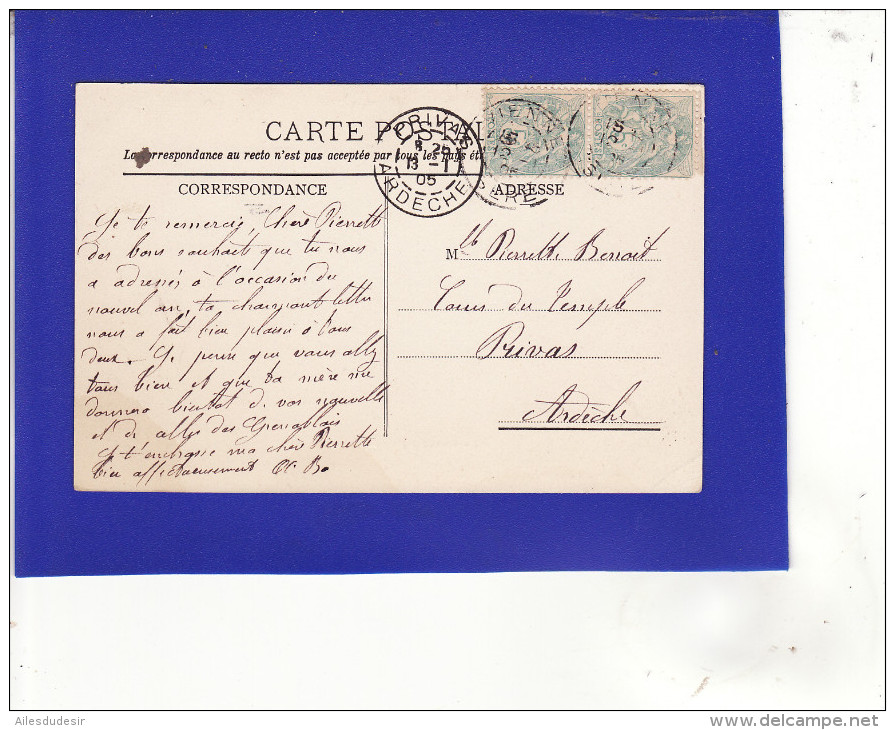 CARTE POSTALE
La correspondance au recto n'est pas acceptée par tous les pays
PRIVAS
8, 25
13 - 1
05
ARDECHE
VIENNE
ISERE
CORRESPONDANCE
ADRESSE
Je te remercie, Chère Pierrette
des bons souhaits que tu nous
a adressés à l'occasion du
nouvel an, ta charmante lettre
nous a fait bien plaisir à tous
deux. Je pense que vous allez
tous bien et que ta mère me
donnera bientôt de vos nouvelles
et de celles des Grenoblois
Je t'embrasse ma chère Pierrette
bien affectueusement
Mlle Pierrette Benoit
Cours du Temple
Privas
Ardèche
Ailesdudesir
delcampe.net